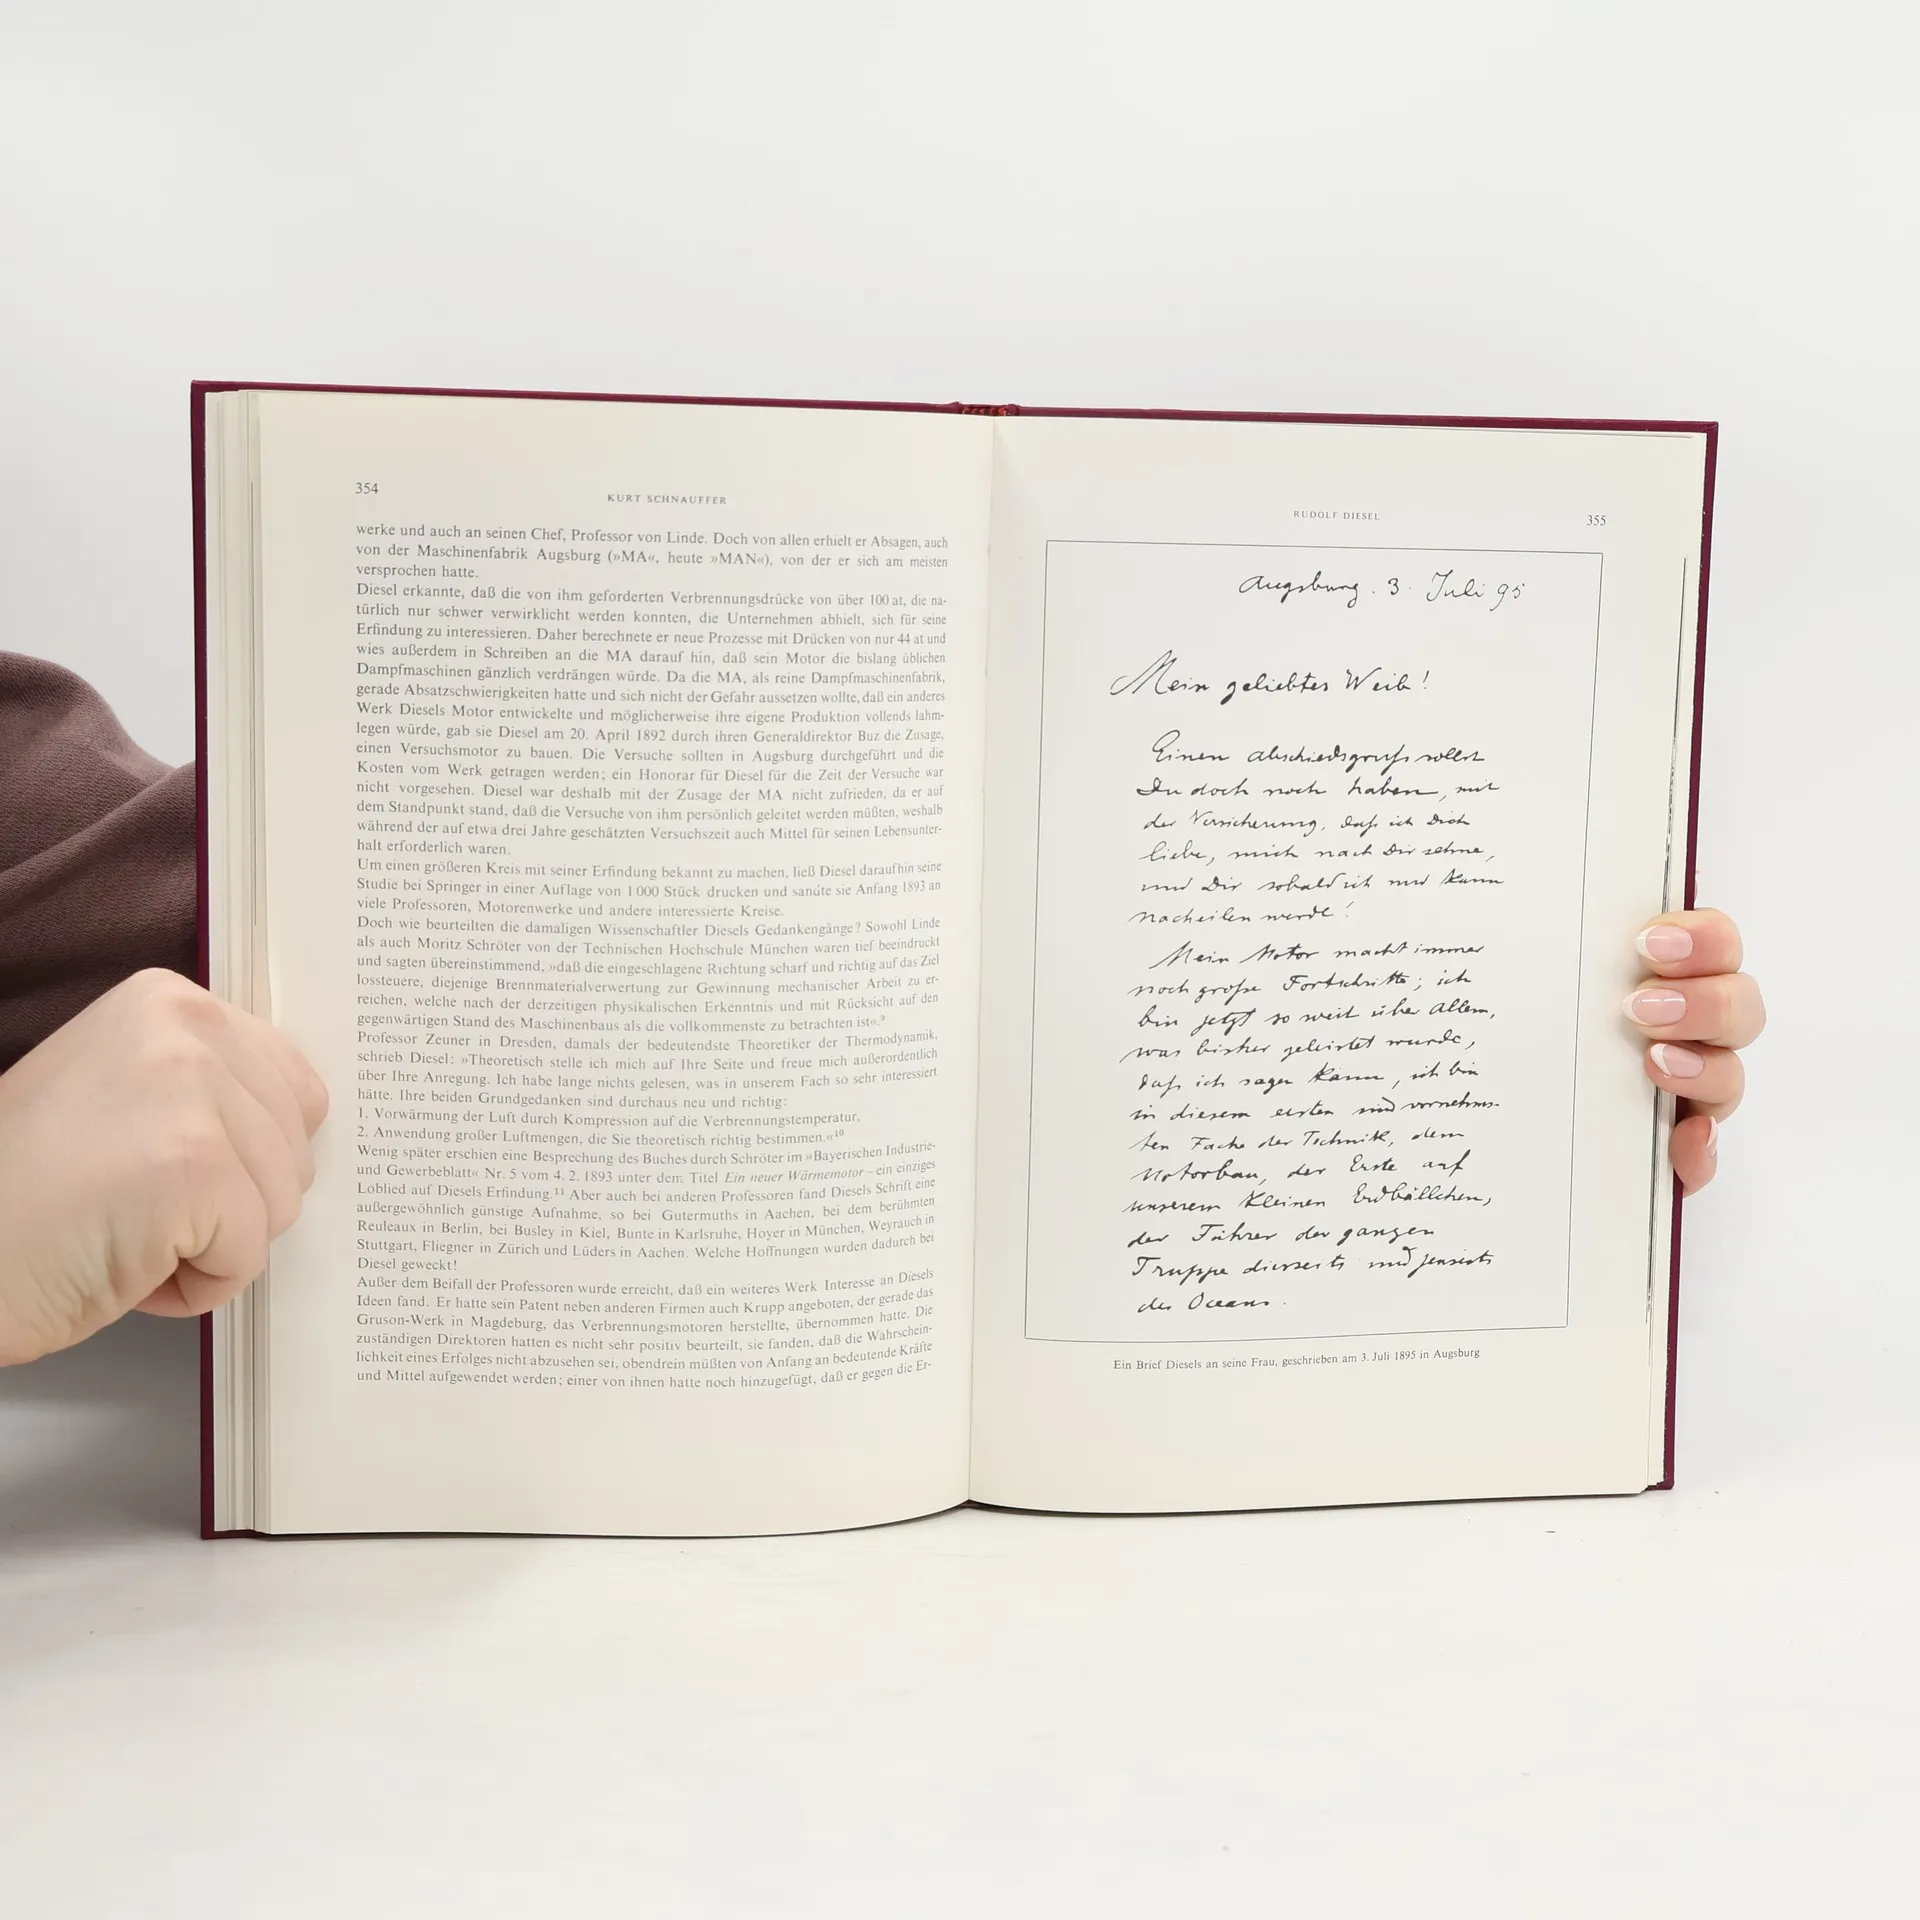 354
KURT SCHNAUFFER
werke und auch an seinen Chef, Professor von Linde. Doch von allen erhielt er Absagen, auch
von der Maschinenfabrik Augsburg (»MA«, heute »MAN«), von der er sich am meisten
versprochen hatte.
Diesel erkannte, daß die von ihm geforderten Verbrennungsdrücke von über 100 at, die na-
türlich nur schwer verwirklicht werden konnten, die Unternehmen abhielt, sich für seine
Erfindung zu interessieren. Daher berechnete er neue Prozesse mit Drücken von nur 44 at und
wies außerdem in Schreiben an die MA darauf hin, daß sein Motor die bislang üblichen
Dampfmaschinen gänzlich verdrängen würde. Da die MA, als reine Dampfmaschinenfabrik,
gerade Absatzschwierigkeiten hatte und sich nicht der Gefahr aussetzen wollte, daß ein anderes
Werk Diesels Motor entwickelte und möglicherweise ihre eigene Produktion vollends lahm-
legen würde, gab sie Diesel am 20. April 1892 durch ihren Generaldirektor Buz die Zusage,
einen Versuchsmotor zu bauen. Die Versuche sollten in Augsburg durchgeführt und die
Kosten vom Werk getragen werden; ein Honorar für Diesel für die Zeit der Versuche war
nicht vorgesehen. Diesel war deshalb mit der Zusage der MA nicht zufrieden, da er auf
dem Standpunkt stand, daß die Versuche von ihm persönlich geleitet werden müßten, weshalb
während der auf etwa drei Jahre geschätzten Versuchszeit auch Mittel für seinen Lebensunter-
halt erforderlich waren.
Um einen größeren Kreis mit seiner Erfindung bekannt zu machen, ließ Diesel daraufhin seine
Studie bei Springer in einer Auflage von 1000 Stück drucken und sandte sie Anfang 1893 an
viele Professoren, Motorenwerke und andere interessierte Kreise.
Doch wie beurteilten die damaligen Wissenschaftler Diesels Gedankengänge? Sowohl Linde
als auch Moritz Schröter von der Technischen Hochschule München waren tief beeindruckt
und sagten übereinstimmend, »daß die eingeschlagene Richtung scharf und richtig auf das Ziel
lossteuere, diejenige Brennmaterialverwertung zur Gewinnung mechanischer Arbeit zu er-
reichen, welche nach der derzeitigen physikalischen Erkenntnis und mit Rücksicht auf den
gegenwärtigen Stand des Maschinenbaus als die vollkommenste zu betrachten ist«.⁹
Professor Zeuner in Dresden, damals der bedeutendste Theoretiker der Thermodynamik,
schrieb Diesel: »Theoretisch stelle ich mich auf Ihre Seite und freue mich außerordentlich
über Ihre Anregung. Ich habe lange nichts gelesen, was in unserem Fach so sehr interessiert
hätte. Ihre beiden Grundgedanken sind durchaus neu und richtig:
1. Vorwärmung der Luft durch Kompression auf die Verbrennungstemperatur,
2. Anwendung großer Luftmengen, die Sie theoretisch richtig bestimmen.«¹⁰
Wenig später erschien eine Besprechung des Buches durch Schröter im »Bayerischen Industrie-
und Gewerbeblatt« Nr. 5 vom 4. 2. 1893 unter dem Titel Ein neuer Wärmemotor – ein einziges
Loblied auf Diesels Erfindung.¹¹ Aber auch bei anderen Professoren fand Diesels Schrift eine
außergewöhnlich günstige Aufnahme, so bei Gutermuths in Aachen, bei dem berühmten
Reuleaux in Berlin, bei Busley in Kiel, Bunte in Karlsruhe, Hoyer in München, Weyrauch in
Stuttgart, Fliegner in Zürich und Lüders in Aachen. Welche Hoffnungen wurden dadurch bei
Diesel geweckt!
Außer dem Beifall der Professoren wurde erreicht, daß ein weiteres Werk Interesse an Diesels
Ideen fand. Er hatte sein Patent neben anderen Firmen auch Krupp angeboten, der gerade das
Gruson-Werk in Magdeburg, das Verbrennungsmotoren herstellte, übernommen hatte. Die
zuständigen Direktoren hatten es nicht sehr positiv beurteilt, sie fanden, daß die Wahrschein-
lichkeit eines Erfolges nicht abzusehen sei, obendrein müßten von Anfang an bedeutende Kräfte
und Mittel aufgewendet werden; einer von ihnen hatte noch hinzugefügt, daß er gegen die Er-
RUDOLF DIESEL
355
Augsburg. 3. Juli 95
Mein geliebtes Weib!
Einen Abschiedsgruß sollst
Du doch noch haben, mit
der Versicherung, daß ich Dich
liebe, mich nach Dir sehne,
und Dir sobald ich nur kann
nacheilen werde!
Mein Motor macht immer
noch große Fortschritte; ich
bin jetzt so weit über Allem,
was bisher geleistet wurde,
daß ich sagen kann, ich bin
in diesem ersten und vornehms-
ten Fache der Technik, dem
Motorbau, der Erste auf
unserem kleinen Erdbällchen,
der Führer der ganzen
Truppe diesseits und jenseits
des Oceans.
Ein Brief Diesels an seine Frau, geschrieben am 3. Juli 1895 in Augsburg